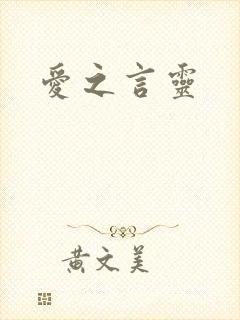 愛之言靈
黃文美